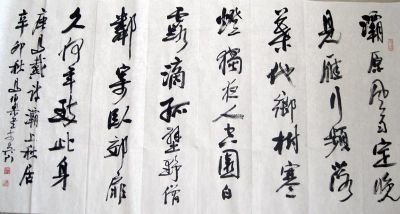 灞原風雨定晚
見雁行頻落
葉他鄉樹寒
燈獨夜人空園白
露滴孤壁野僧
鄰寄臥郊扉
久何年致此身
唐馬戴詩灞上秋居
辛卯秋月